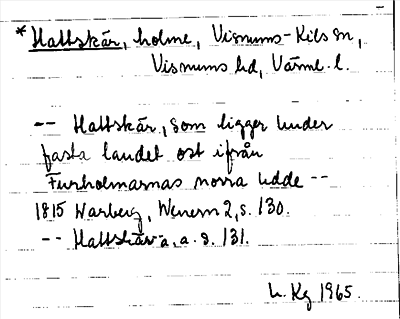 *Hattskär, holme, Visnums-Kils sn,
Visnums hd, Värml. l.
-- Hattskär, som ligger under
fasta landet ost ifrån
Furholmarnas norra udde --
1815 Warberg, Wenern 2, s. 130.
-- Hattskär a. a. s. 131.
L. Kg 1965.